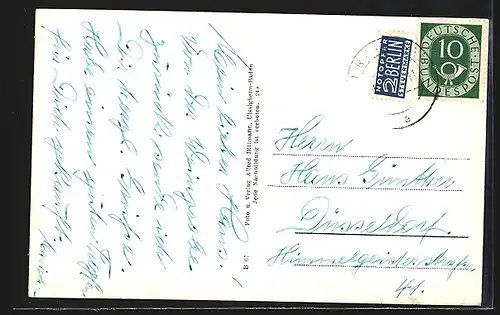 Mein lieber Hans!
Von der Weinprobe
zurück sende ich
Dir herzl. Grüsse.
Habe einen guten
für Dich
B 67 Foto u. Verlag Alfred Dittmann, Uissigheim-Baden
Jede Nachbildung ist verboten.
NOTOPFER
2 BERLIN
STEUERMARKE
DEUTSCHE
BUNDESPOST
10
Herrn
Hans Günther
Düsseldorf.
Himmelgeisterstraße
41.